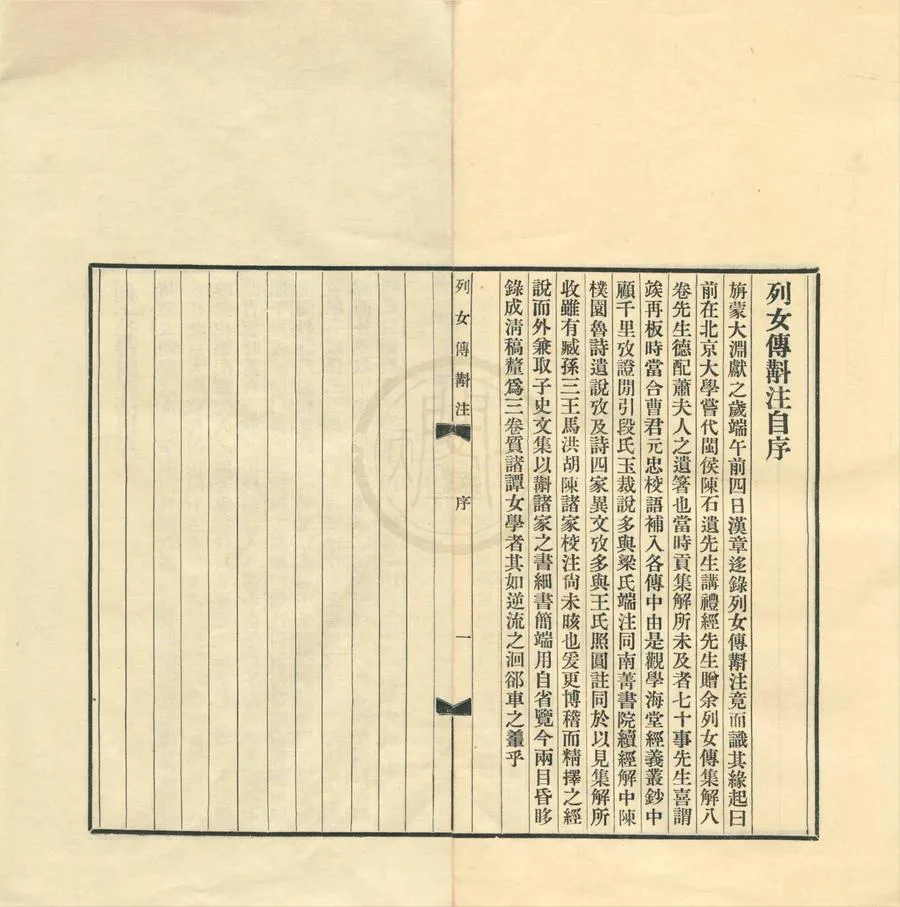 列女傳斠注自序
旃蒙大淵獻之歲端午前四日漢章迻錄列女傳斠注竟而識其緣起曰
前在北京大學嘗代閩侯陳石遺先生講禮經先生贈余列女傳集解八
卷先生德配蕭夫人之遺箸也當時貢集解所未及者七十事先生喜謂
竢再板時當合曹君元忠校語補入各傳中由是觀學海堂經義叢鈔中
顧千里攷證閒引段氏玉裁說多與梁氏端注同南菁書院續經解中陳
樸園魯詩遺說攷及詩四家異文攷多與王氏照圓註同於以見集解所
收雖有臧孫三王馬洪胡陳諸家校注尙未晐也爰更博稽而精擇之經
說而外兼取子史文集以斠諸家之書細書簡端用自省覽今兩目昏眵
錄成淸稿釐爲三卷質諸譚女學者其如逆流之洄郤車之乎
列女傳斠注
序
一